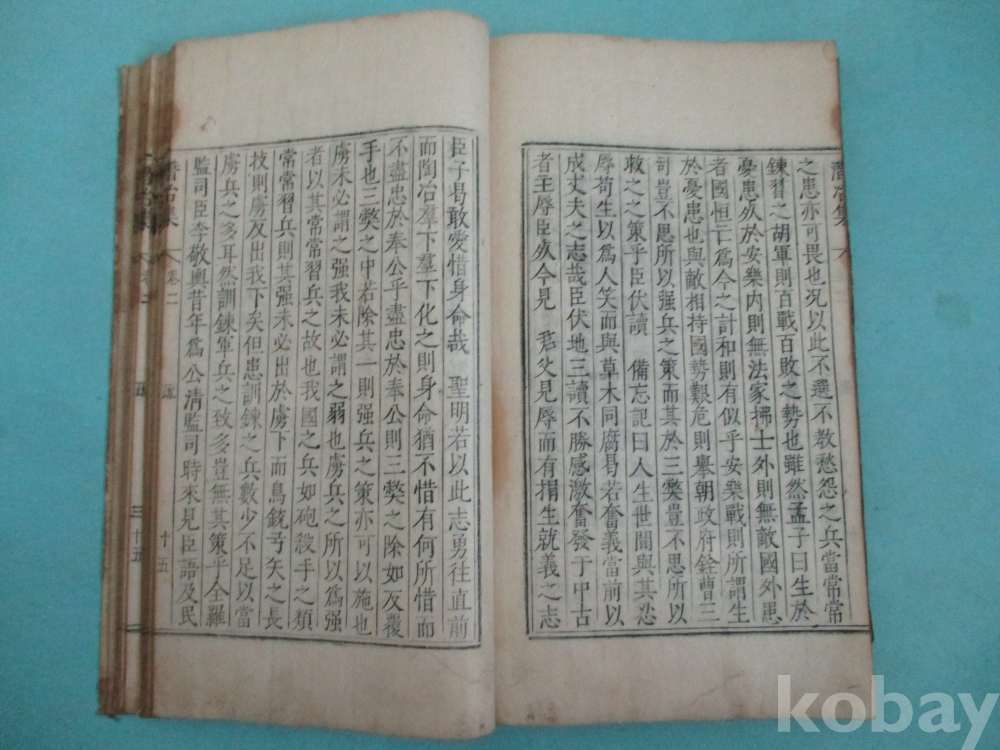 潛冶集
之患亦可畏也况以此不選不教愁怨之兵當常常
鍊習之胡軍則百戰百敗之勢也雖然孟子曰生於
憂患死於安樂内則無法家拂士外則無敵國外患
者國恒亡爲今之計和則有似乎安樂戰則所謂生
於憂患也與敵相持國勢艱危則擧朝政府銓曹三
司豈不思所以强兵之策而其於三獘豈不思所以
救之之策乎臣伏讀 備忘記曰人生世間與其忍
辱苟生以爲人笑而與草木同腐曷若奮義當前以
成丈夫之志哉臣伏地三讀不勝感激奮發于中古
者主辱臣死今見 君父見辱而有捐生就義之志
臣子曷敢愛惜身命哉 聖明若以此志勇往直前
而陶冶羣下羣下化之則身命猶不惜有何所惜而
不盡忠於奉公乎盡忠於奉公則二獘之除如反覆
手也三獘之中若除其一則强兵之策亦可以施也
虜未必謂之强我未必謂之弱也虜兵之所以爲强
者以其常常習兵之故也我國之兵如砲殺手之類
常常習兵則其强未必出於虜下而鳥銃弓矢之長
技則虜反出我下矣但患訓鍊之兵數少不足以當
虜兵之多耳然訓鍊軍兵之致多豈無其策乎全羅
監司臣李敬輿昔年爲公清監司時來見臣語及民
潛冶集 卷二 疏 十五
kobay